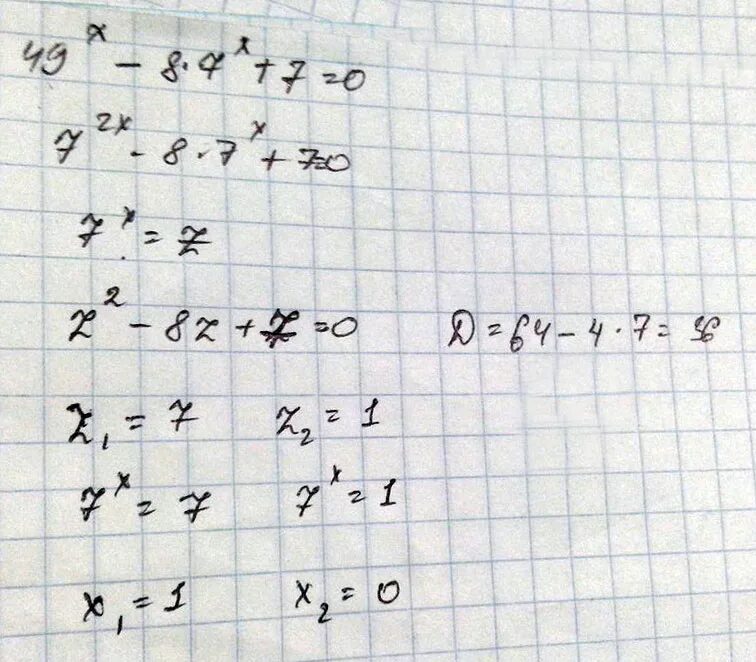 49^x - 8·7^x + 7 = 0
7^{2x} - 8·7^x + 7 = 0
7^x = z
z^2 - 8z + 7 = 0    D = 64 - 4·7 = 36
z_1 = 7    z_2 = 1
7^x = 7    7^x = 1
x_1 = 1    x_2 = 0